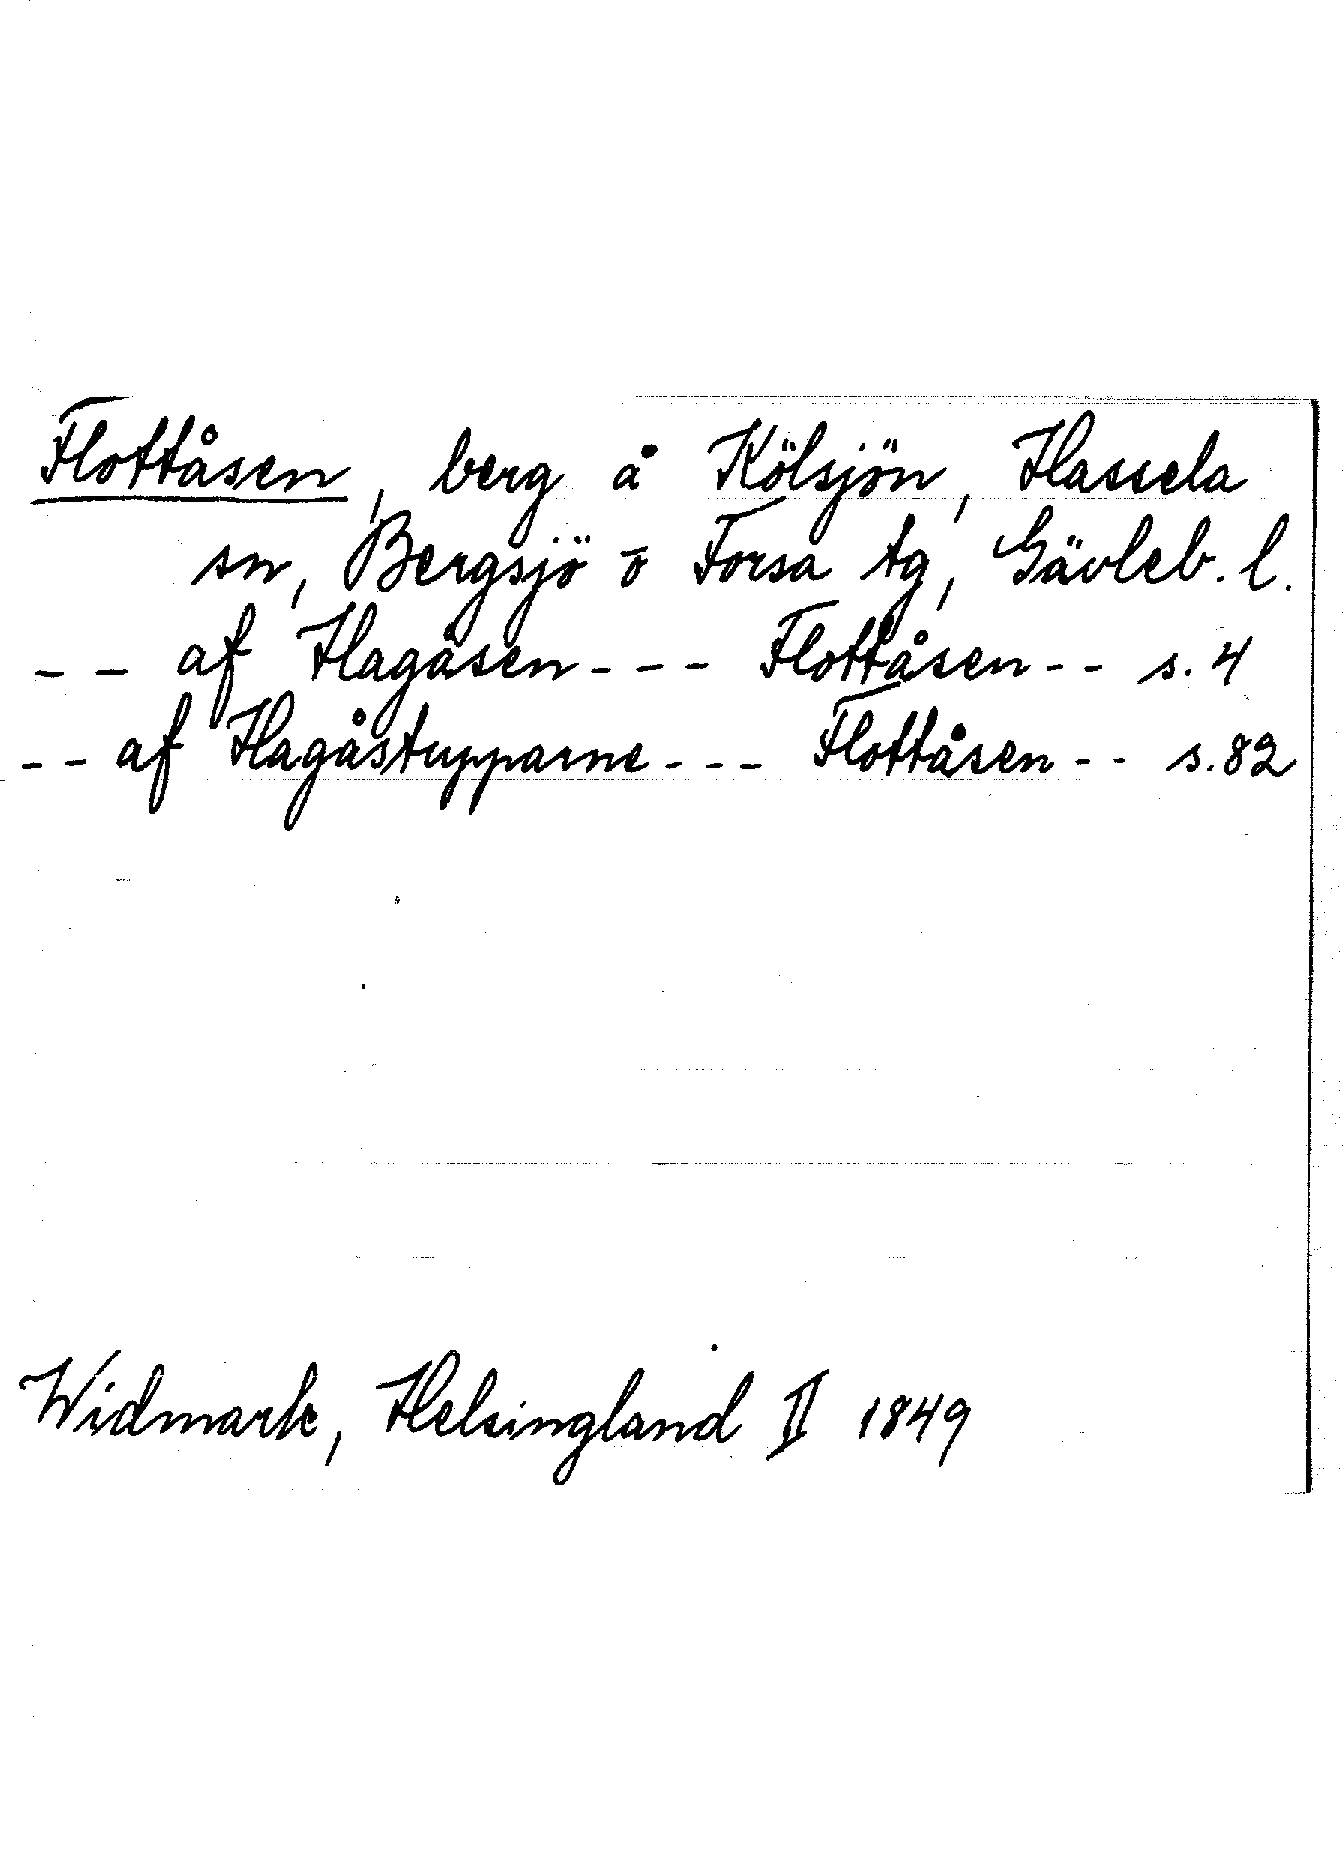 Flottåsen, berg å Kölsjön, Hassela
sn, Bergsjö o Forsa tg, Gävleb. l.
-- af Hagåsen --- Flottåsen -- s. 4
-- af Hagåstupparne --- Flottåsen -- s. 82
Widmark, Helsingland II 1849